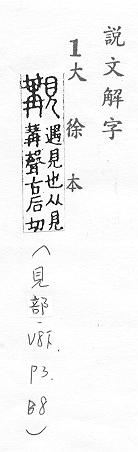 說文解字
1大徐本
覯 遇見也从見
冓聲古后切
(見部, V8下. P3. B8)